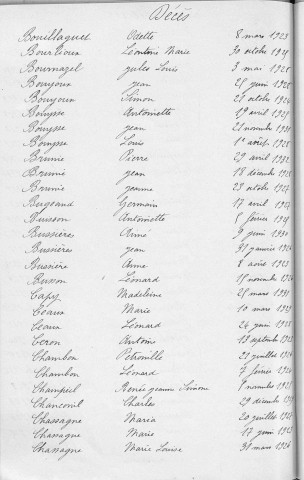 Décès
Bouillaguet Odette 8 mars 1923
Bourlioux Léontine Marie 30 octobre
Bournazel Jules Louis 3 mai 1928
Bouyoux Jean 21 juin 1928
Bouyoux Simon 26 octobre
Bouysse Antoinette 19 avril
Bouysse Jean 21 novembre
Bouysse Louis 1er août 1928
Brunie Pierre 29 avril 1932
Brunie Jean 18 décembre
Brunie Jeanne 23 octobre
Bugeaud Germain 17 avril
Buisson Antoinette 5 février
Bussière Aimé 9 juin 1930
Bussière Jean 31 janvier
Bussière Anne 8 août 1923
Buisson Léonard 15 novembre
Capy Madeleine 25 mars 1931
Ceaux Marie 10 mars
Ceaux Léonard 26 juin 1928
Ceron Antoine 18 septembre
Chambon Petronille 21 juillet
Chambon Léonard 7 février
Champeil Renée Jeanne Simone novembre
Chanconil Charles 29 décembre
Chassagne Maria 20 juillet
Chassagne Marie 17 juin
Chassagne Marie Louise 31 mars 1926